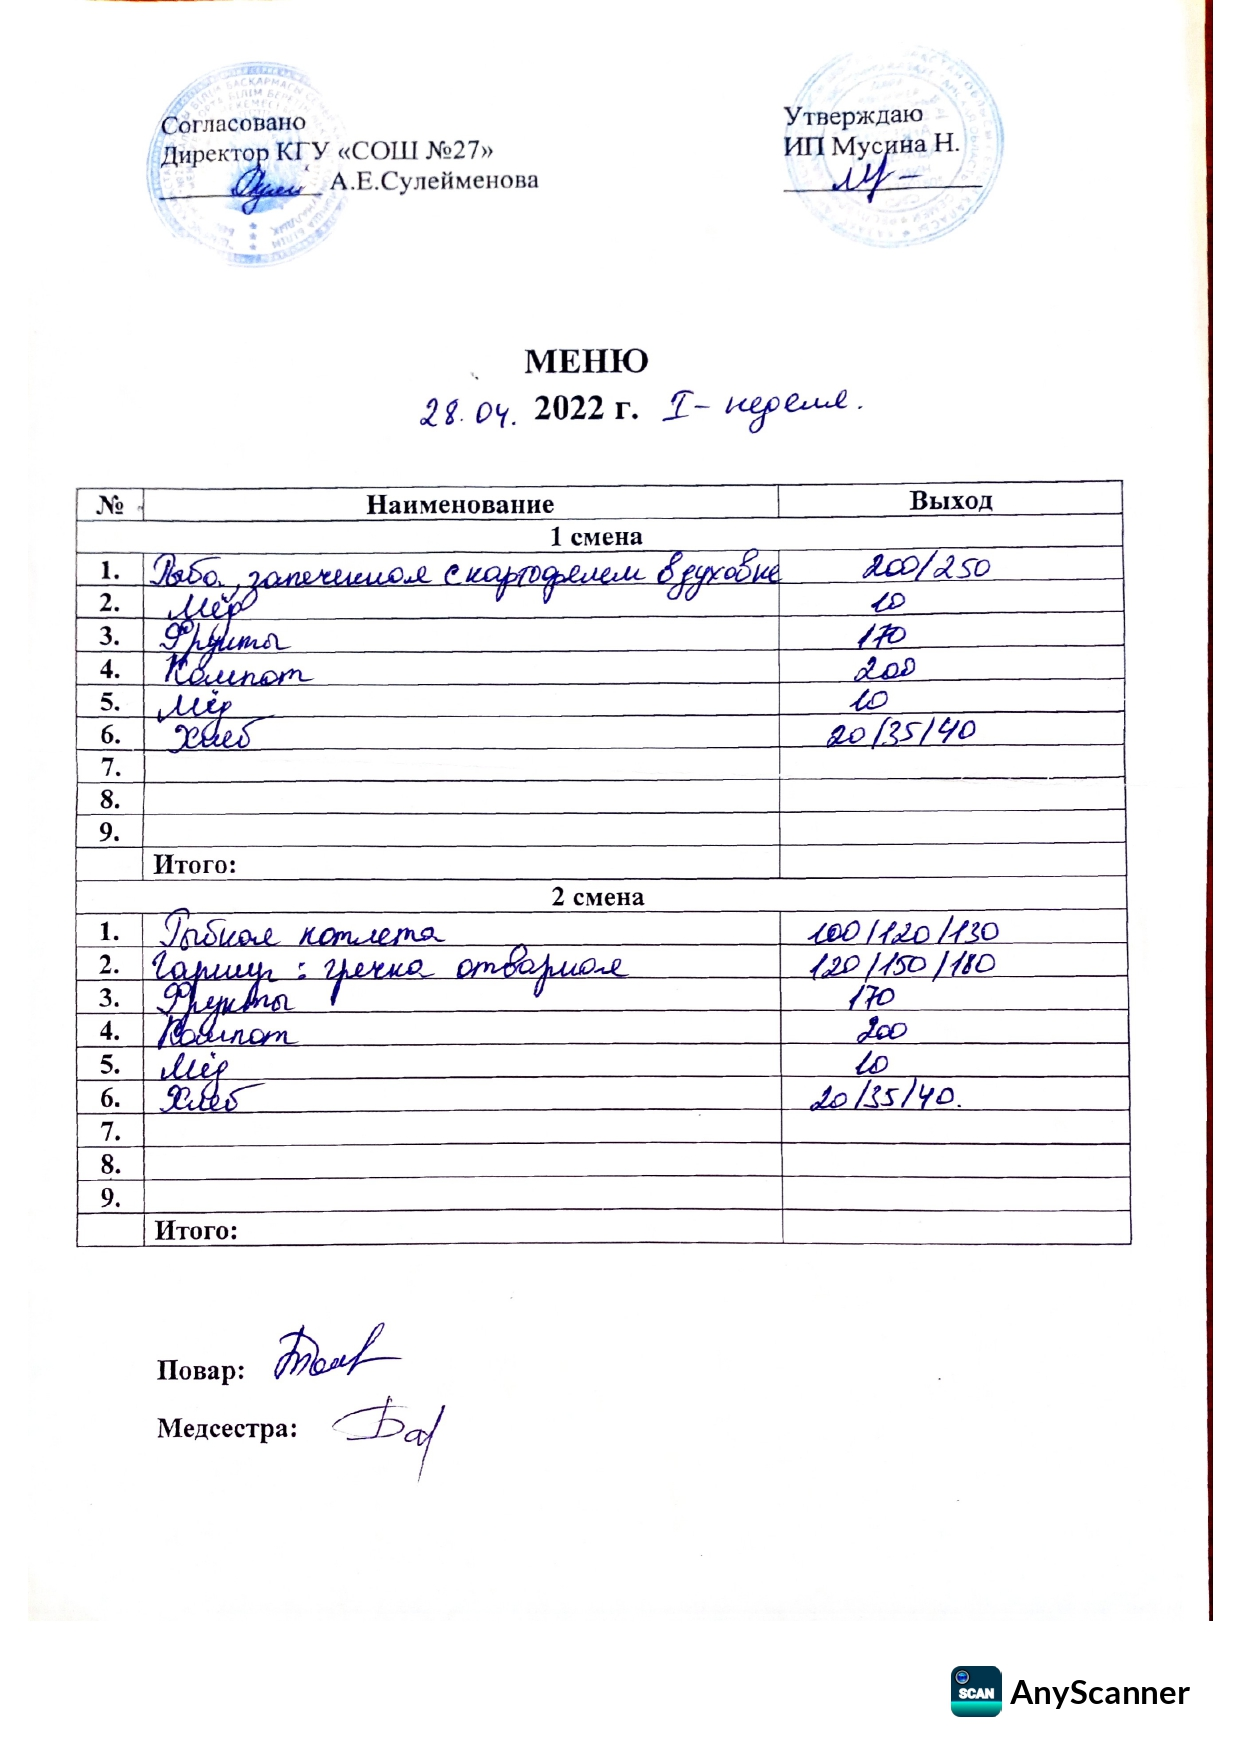 Согласовано
Директор КГУ «СОШ №27»
А.Е.Сулейменова
Утверждаю
ИП Мусина Н.
МЕНЮ
28.04. 2022 г. I- неделя.
№ Наименование Выход
1 смена
1. Рыба, запеченная с картофелем в духовке 200/250
2. Мёд 10
3. Фрукты 170
4. Компот 200
5. Мёд 10
6. Хлеб 20/35/40
7.
8.
9.
Итого:
2 смена
1. Рыбная котлета 100/120/130
2. Гарнир: гречка отварная 120/150/180
3. Фрукты 170
4. Компот 200
5. Мёд 10
6. Хлеб 20/35/40.
7.
8.
9.
Итого:
Повар:
Медсестра:
SCAN AnyScanner